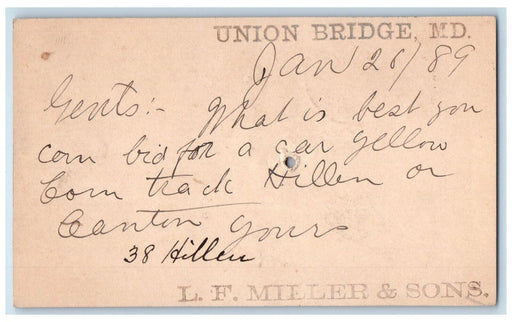 UNION BRIDGE, MD.
Jan 28/89
Gents:- What is best you
can bid for a car yellow
Corn track Hillen or
Canton Yours
38 Hillen
L. F. MILLER & SONS.